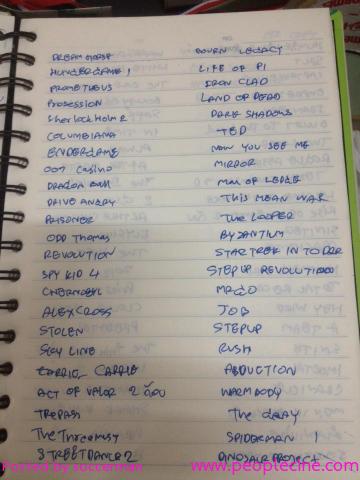 DREAM HOUSE
HUNGERGAME 1
PROMETHEUS
POSESSION
SherlockHolm 2
COLUMBIANA
ENDERGAME
007 Casino
DRAGON Ball
DRIVE ANGRY
PRISONER
ODD Thomas
REVOLUTION
SPY KID 4
CHERNOBYL
ALEXCROSS
STOLEN
SKY LINE
CARRIE
ACT OF VALOR 2
TREPASS
STREETDANCE 2
BOURN LEGACY
LIFE OF PI
IRON CLAD
LAND OF DEAD
DARK SHADOWS
TED
NOW YOU SEE ME
MIRROR
MAN OF LEDGE
THIS MEAN WAR
The LOOPER
BYZANTIUM
STARTREK IN TO DAR
STEPUP REVOLUTION
JOB
STEPUP
RUSH
ABDUCTION
WARMBODY
The
SPIDERMAN 1
DINOSAUR PROJECT
Posted by succeman
www.peoplecine.com